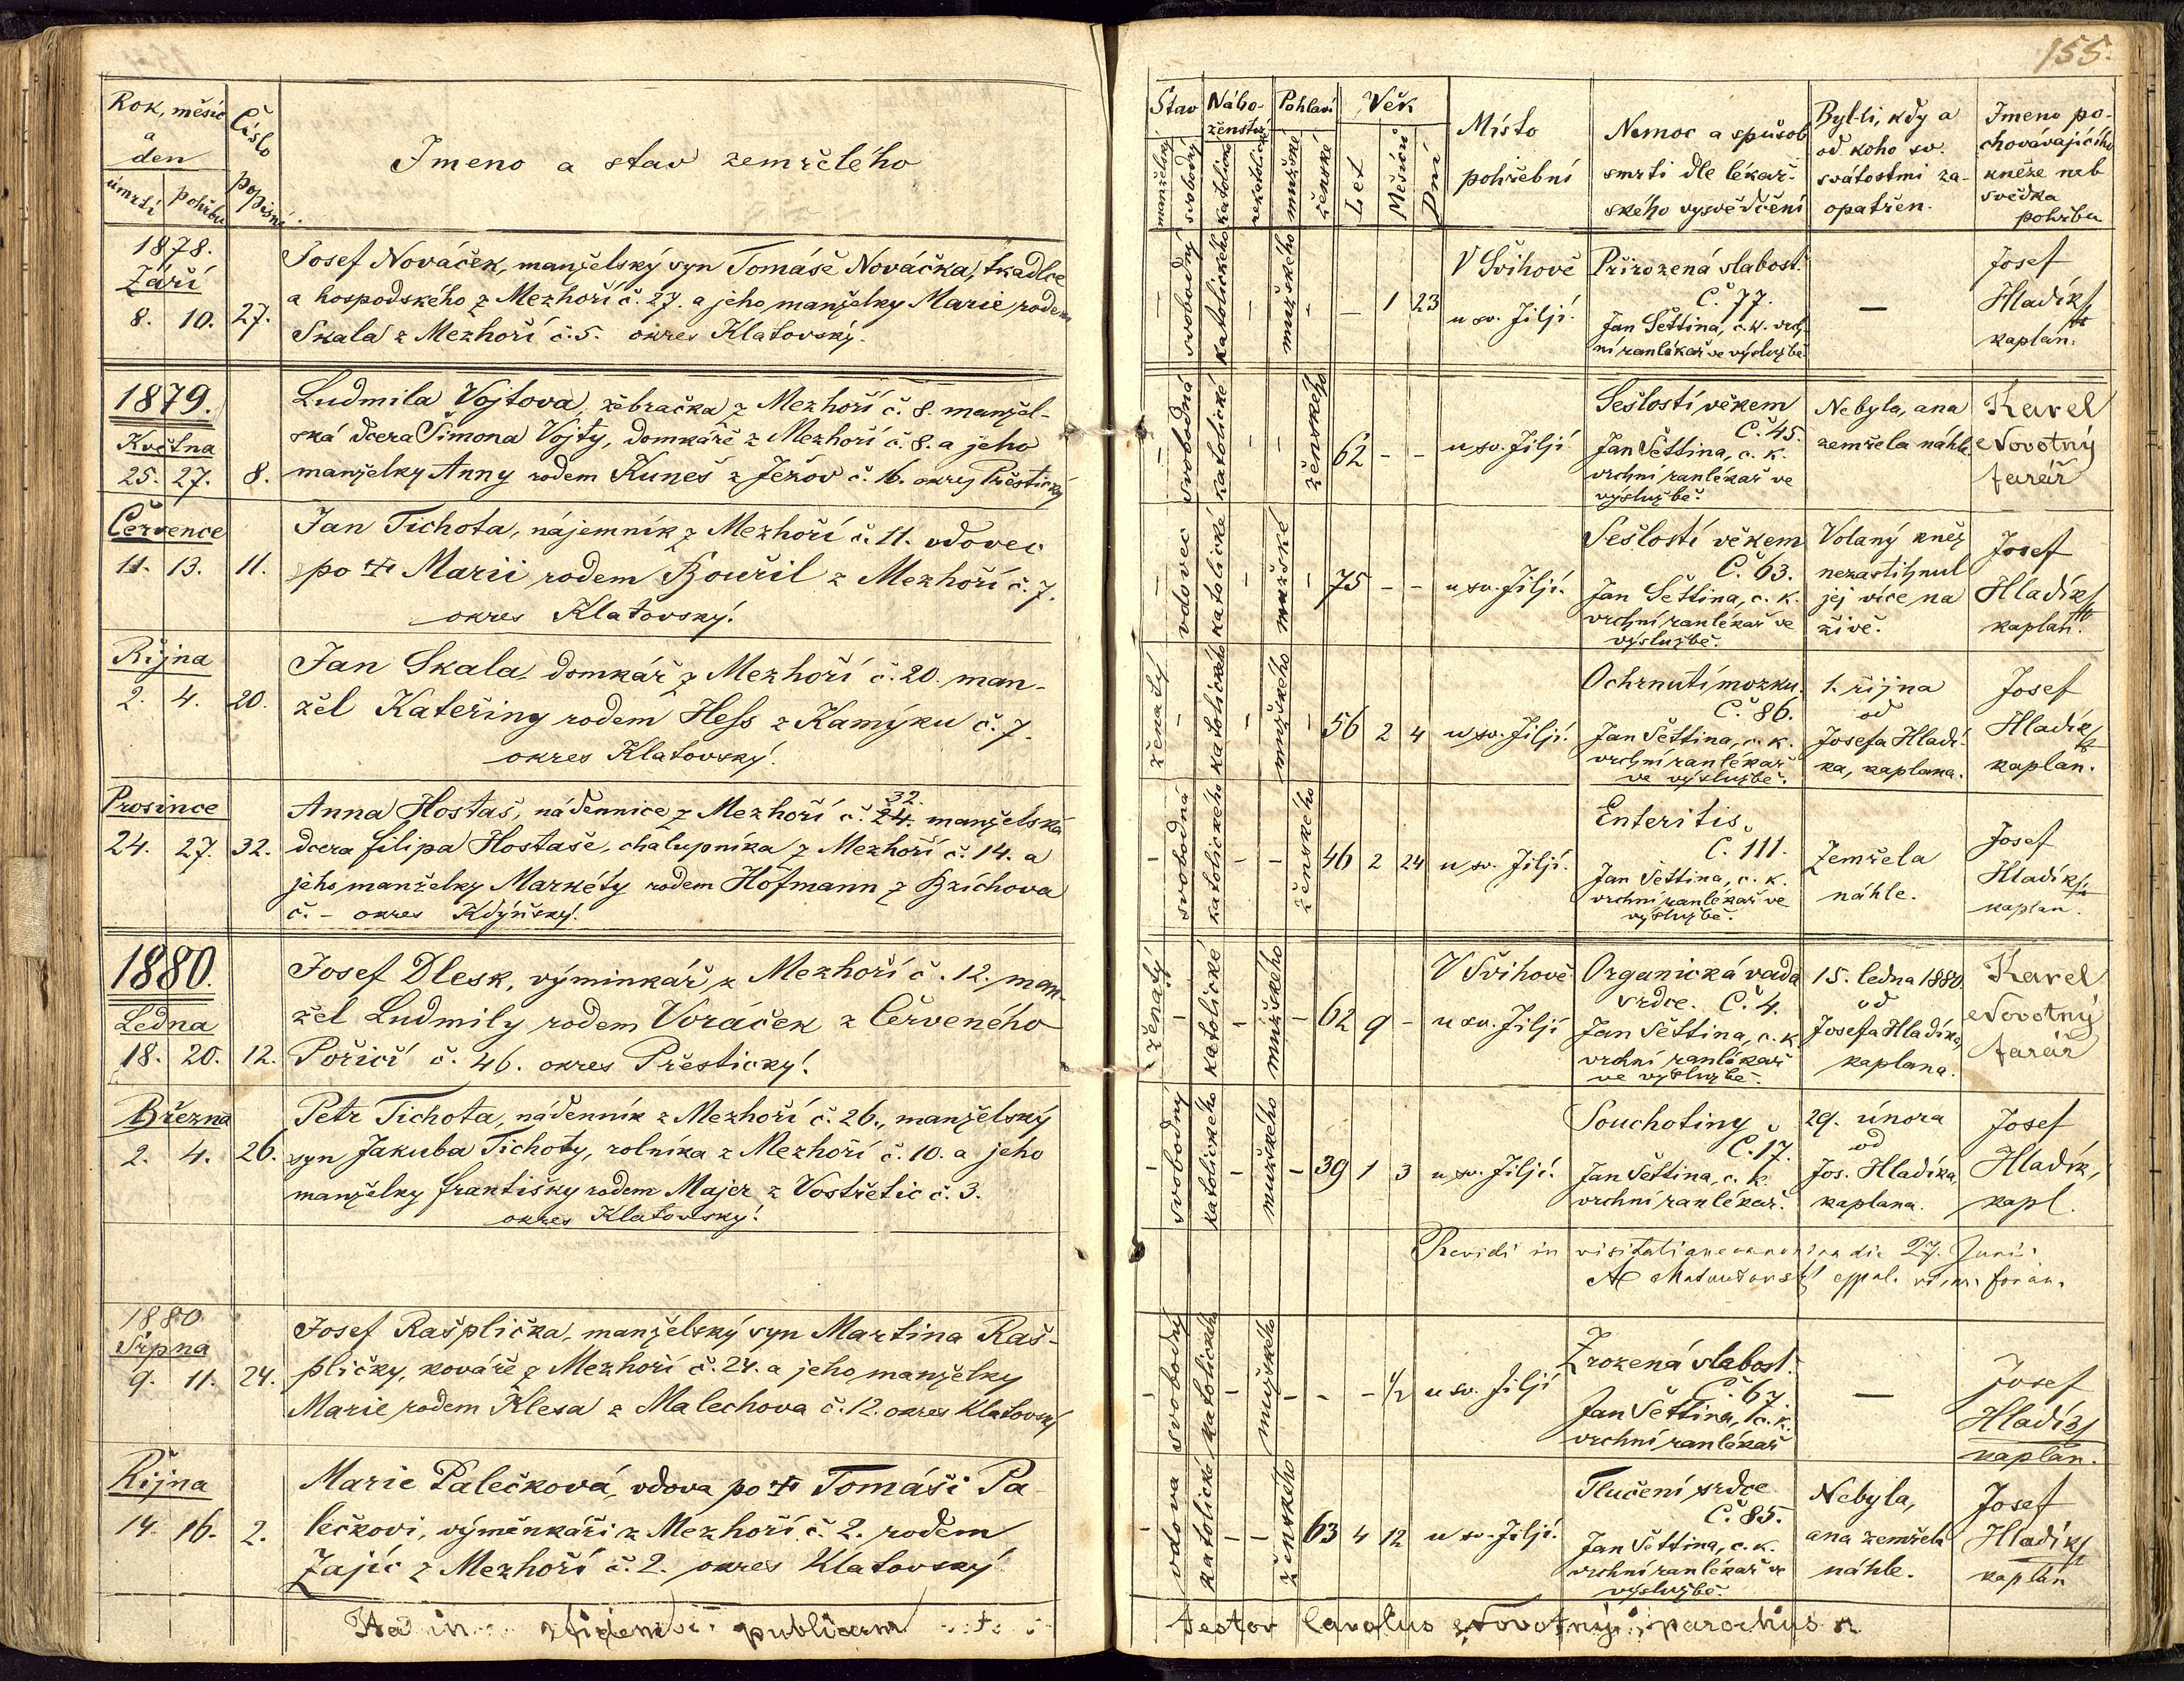 155.
Rok, měsíc
a
den
úmrtí pohřbu
Číslo popisné
Jmeno a stav zemřelého
1878.
Září
8. 10. 27.
Josef Nováček, manželský syn Tomáše Nováčka, tkadlce
a hospodského z Mezhoří č. 27. a jeho manželky Marie rodem
Skala z Mezhoří č. 5. okres Klatovský.
1879.
Května
25. 27. 8.
Ludmila Vojtova, žebračka z Mezhoří č. 8. manžel-
ská dcera Šimona Vojty, domkáře z Mezhoří č. 8. a jeho
manželky Anny rodem Kuneš z Ježov č. 16. okres Přestický
Července
11. 13. 11.
Jan Tichota, nájemník z Mezhoří č. 11. vdovec
po † Marii rodem Bouřil z Mezhoří č. 7.
okres Klatovský.
Října
2. 4. 20.
Jan Skala, domkář z Mezhoří č. 20. man-
žel Kateřiny rodem Hess z Kamýku č. 7.
okres Klatovský.
Prosince
24. 27. 32.
32.
Anna Hostaš, nádennice z Mezhoří č. 24. manželská
dcera Filipa Hostaše, chalupníka z Mezhoří č. 14. a
jeho manželky Markéty rodem Hofmann z Bzíchova
č. – okres Kdýňský.
1880.
Ledna
18. 20. 12.
Josef Dlesk, výminkář z Mezhoří č. 12. man-
žel Ludmily rodem Voráček z Červeného
Poříčí č. 46. okres Přestický.
Března
2. 4. 26.
Petr Tichota, nádenník z Mezhoří č. 26., manželský
syn Jakuba Tichoty, rolníka z Mezhoří č. 10. a jeho
manželky Františky rodem Majer z Vostřetic č. 3.
okres Klatovský.
1880
Srpna
9. 11. 24.
Josef Rašplička, manželský syn Martina Raš-
pličky, kováře z Mezhoří č. 24. a jeho manželky
Marie rodem Klesa z Malechova č. 12. okres Klatovský
Října
14. 16. 2.
Marie Palečková, vdova po † Tomáši Pa-
lečkovi, výměnkáři z Mezhoří č. 2. rodem
Zajíc z Mezhoří č. 2. okres Klatovský
fidem publicam
Stav Nábo-ženství Pohlaví Věk
manželský svobodný katolické nekatolické mužské ženské Let Měsíců Dní
Místo
pohřební
Nemoc a spůsob
smrti dle lékař-
ského vysvědčení
Byl-li, kdy a
od koho sv.
svátostmi za-
opatřen.
Jmeno po-
chovávajícího
kněze neb
svědka
pohřbu
– svobodný katolického – mužského – – 1 23
V Švihově
u sv. Jiljí.
Přirozená slabost.
Č. 77.
Jan Šettina, c. k. vrch-
ní ranlékař ve výslužbě.
–
Josef
Hladík
kaplan.
– svobodná katolické – – ženského 62 – –
u sv. Jiljí
Sešlostí věkem
Č. 45.
Jan Šettina, c. k.
vrchní ranlékař ve
výslužbě.
Nebyla, ana
zemřela náhle
Karel
Novotný
farář
– vdovec katolické – mužské – 75 – –
u sv. Jiljí.
Sešlostí věkem
Č. 63.
Jan Šettina, c. k.
vrchní ranlékař ve
výslužbě.
Volaný kněz
nezastihnul
jej více na
živě.
Josef
Hladík
kaplan.
ženatý – katolického – mužského – 56 2 4
u sv. Jiljí.
Ochrnutí mozku.
Č. 86.
Jan Šettina, c. k.
vrchní ranlékař
ve výslužbě.
1. října
od
Josefa Hladí-
ka, kaplana.
Josef
Hladík
kaplan.
– svobodná katolického – – ženského 46 2 24
u sv. Jiljí.
Enteritis
Č. 111.
Jan Šettina, c. k.
vrchní ranlékař ve
výslužbě.
Zemřela
náhle.
Josef
Hladík
kaplan.
ženatý – katolické – mužského – 62 9 –
V Švihově
u sv. Jiljí
Organická vada
srdce. Č. 4.
Jan Šettina, c. k.
vrchní ranlékař
ve výslužbě.
15. ledna 1880
od
Josefa Hladíka,
kaplana.
Karel
Novotný
farář
– svobodný katolického – mužského – 39 1 3
u sv. Jiljí.
Souchotiny
Č. 17.
Jan Šettina, c. k.
vrchní ranlékař.
29. února
od
Jos. Hladíka,
kaplana.
Josef
Hladík,
kapl.
Revidi in visitatione canonica die 27. Junii
– svobodný katolického – mužského – – – 1/2
u sv. Jiljí
Zrozená slabost.
Č. 67
Jan Šettina, c. k.
vrchní ranlékař
–
Josef
Hladík
kaplan.
– vdova katolické – – ženského 63 4 12
u sv. Jiljí.
Tlučení srdce
Č. 85.
Jan Šettina, c. k.
vrchní ranlékař ve
výslužbě.
Nebyla,
ana zemřela
náhle.
Josef
Hladík
kaplan
testor Carolus Novotný, parochus